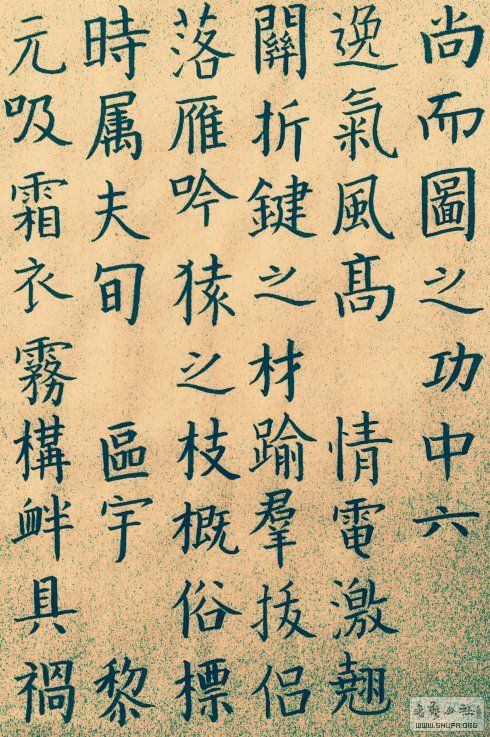 尚而圖之功中六
逸氣風髙情電激翹
關折鍵之材踰羣拔侶
落雁吟猿之枝概俗標
時属夫旬區宇黎
元吸霜衣霧構衅具禍
WWW.SHUFA.ORG